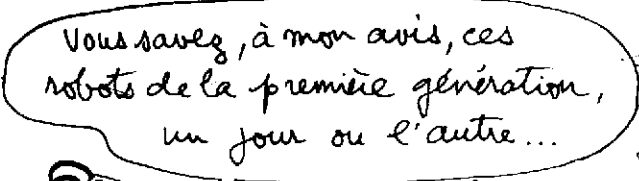 Vous savez, à mon avis, ces
robots de la première génération,
un jour ou l'autre...